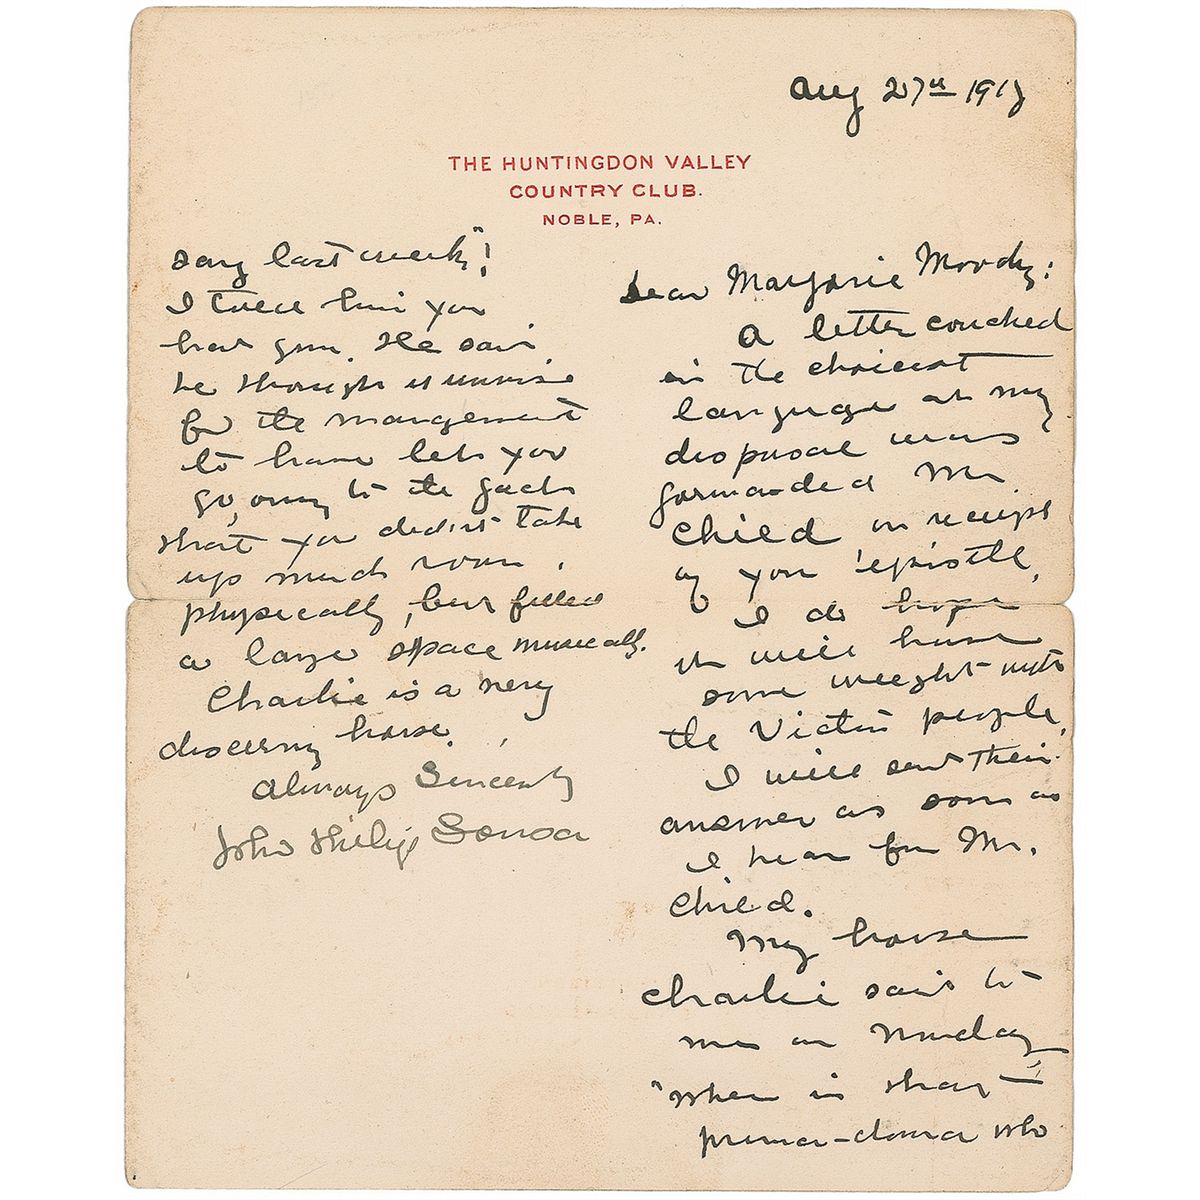 Aug 27th 191
THE HUNTINGDON VALLEY
COUNTRY CLUB.
NOBLE, PA.
Dear Marjorie Moody:
A letter couched
in the choicest
language at my
disposal was
forwarded Mr
Child on receipt
of your epistle.
I do hope
it will have
some weight with
the Victor people,
I will send their
answer as soon as
I hear from Mr.
Child.
My horse
Charlie said to
me on Monday,
"Where is that
prima-donna who
sang last week"!
I told him you
had gone. He said
he thought it unwise
for the management
to have let you
go, owing to the fact
that you didn't take
up much room
physically, but filled
a large space musically.
Charlie is a very
discerning horse.
Always Sincerely
John Philip Sousa